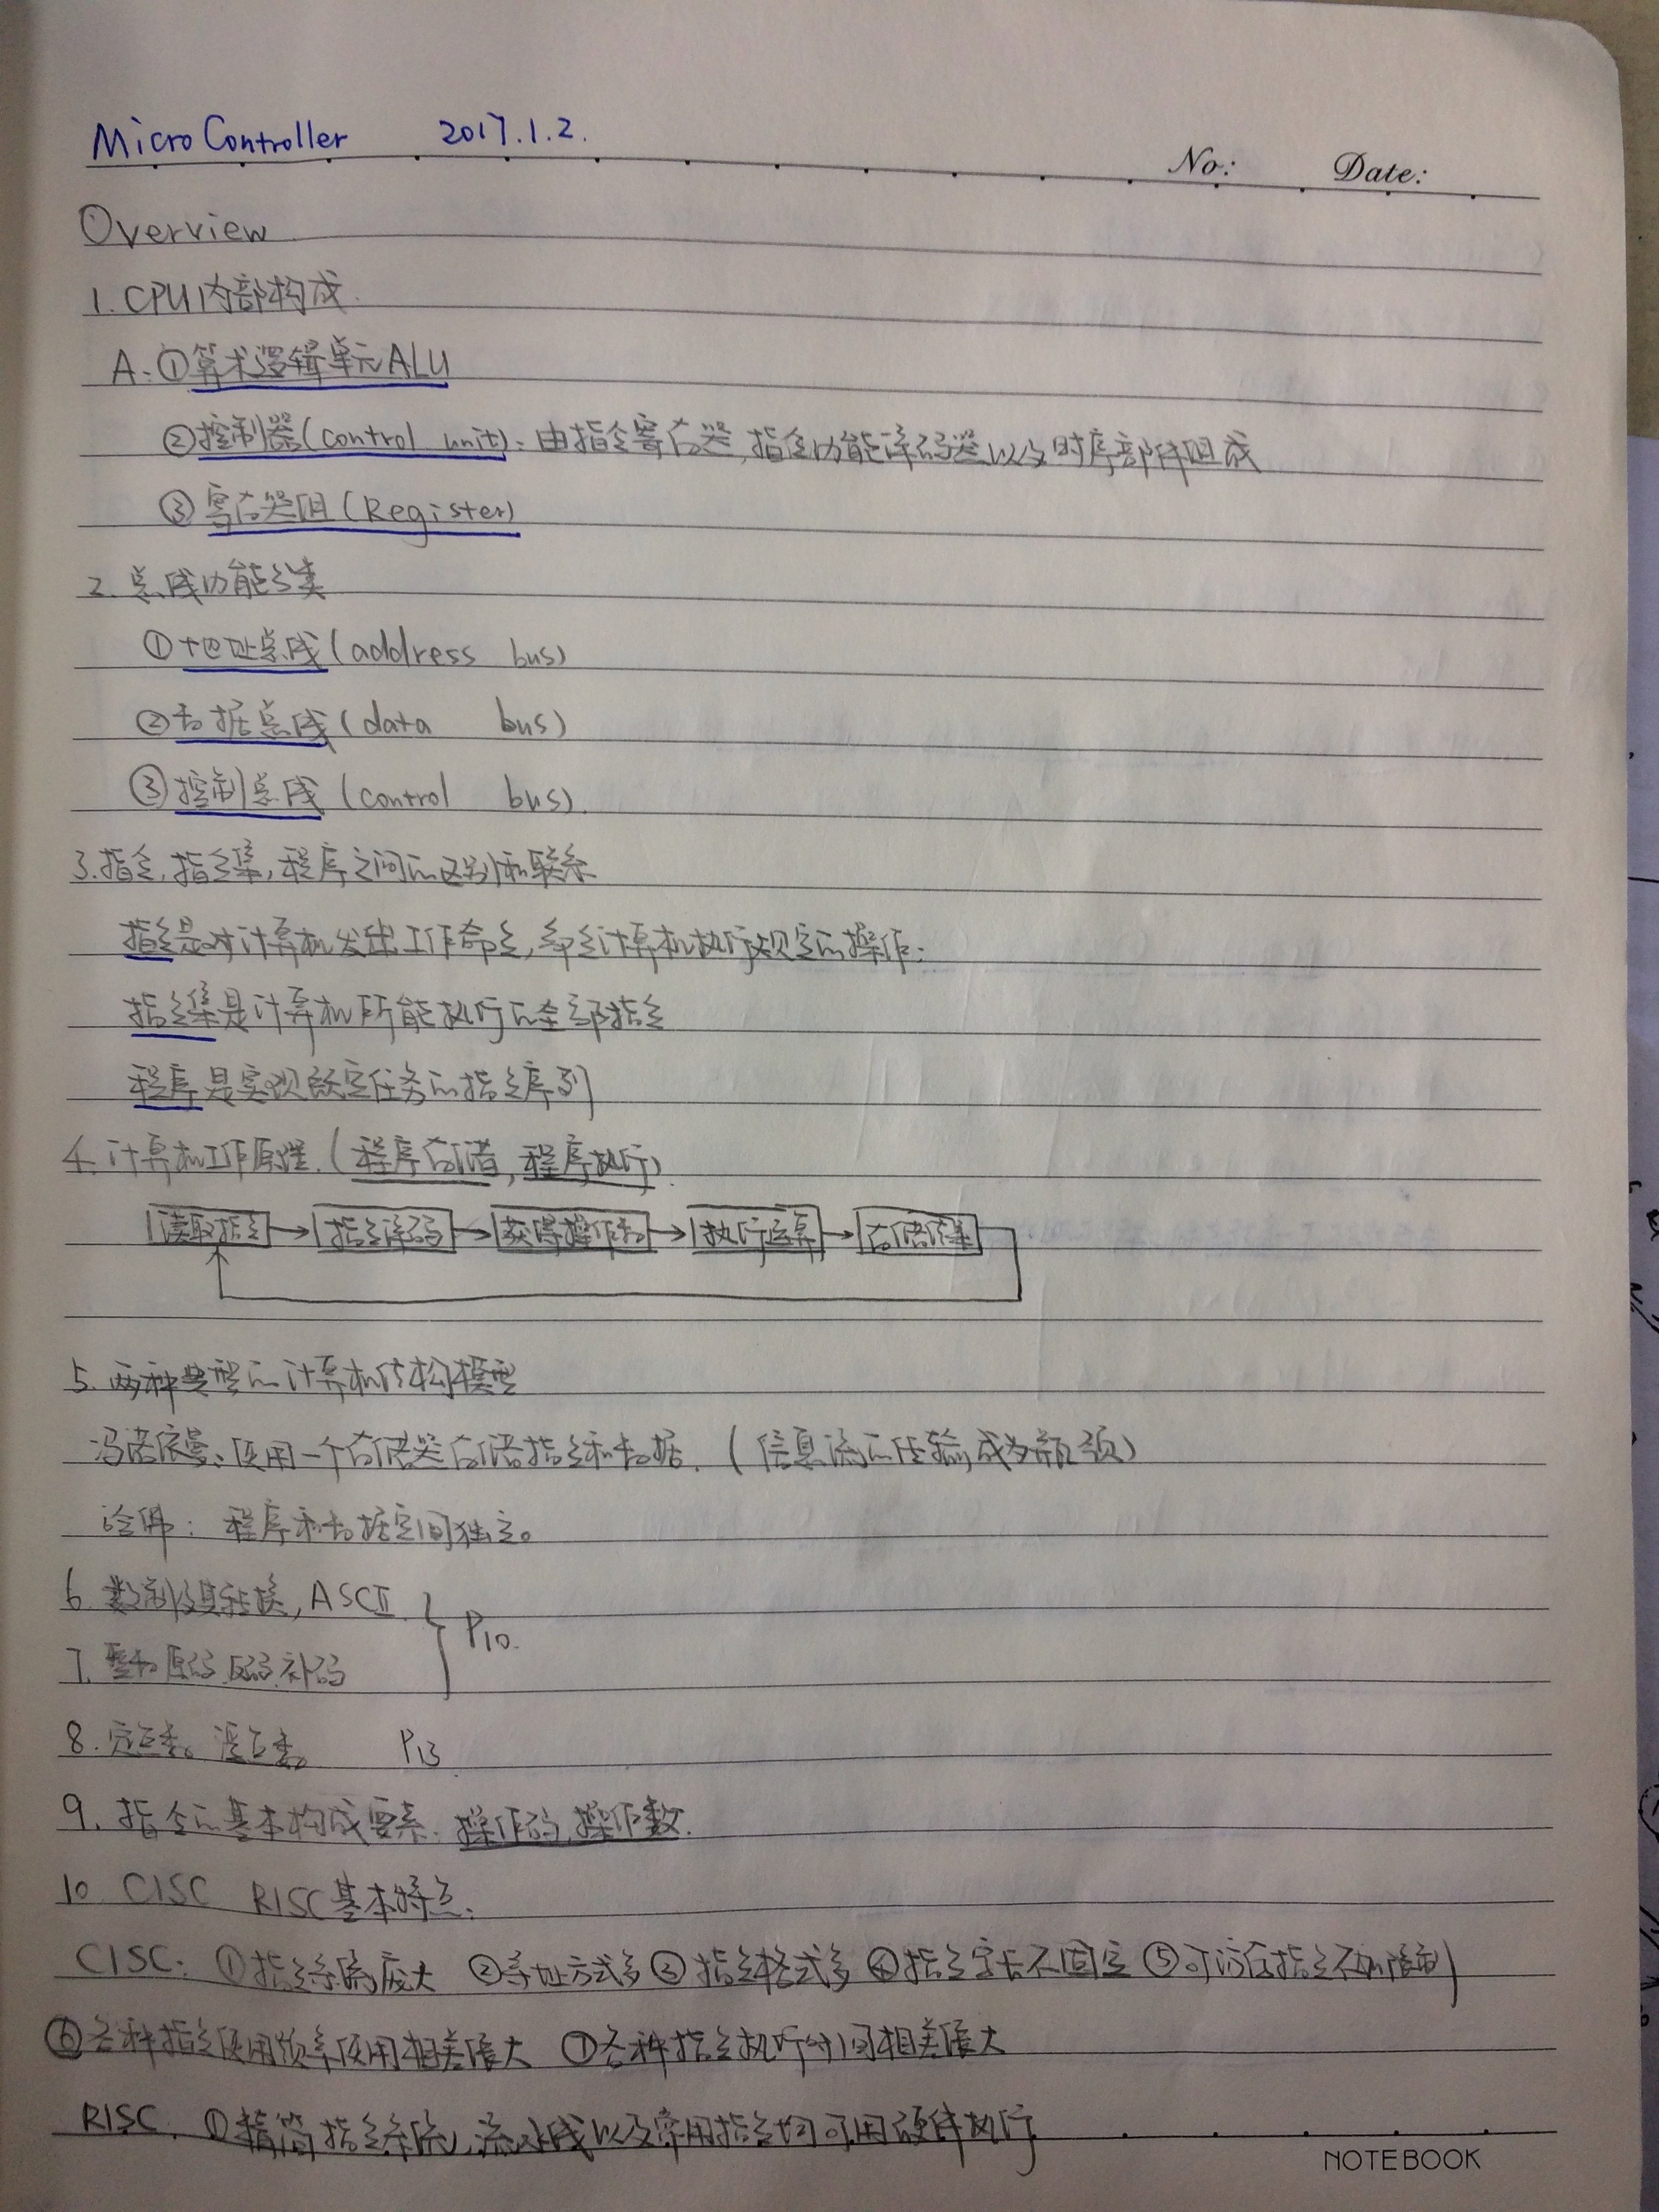 Micro Controller 2017.1.2.
No: Date:
Overview
1. CPU内部构成.
A: ①算术逻辑单元ALU
②控制器(control unit): 由指令寄存器,指令功能译码器以及时序部件组成
③寄存器组(Register)
2. 总线功能分类
①地址总线(address bus)
②数据总线(data bus)
③控制总线(control bus).
3.指令,指令集,程序之间的区别和联系
指令是对计算机发出工作命令,命令计算机执行规定的操作;
指令集是计算机所能执行的全部指令
程序是实现既定任务的指令序列
4. 计算机工作原理.(程序存储,程序执行)
读取指令→指令译码→获得操作数→执行运算→存储结果
5. 两种典型的计算机结构模型
冯诺依曼: 使用一个存储器存储指令和数据.(信息流的传输成为瓶颈)
哈佛: 程序和数据空间独立。
6. 数制及其转换, ASCII
P10.
7. 整数原码.反码.补码
8. 定点数。浮点数。 P13
9. 指令的基本构成要素: 操作码,操作数.
10 CISC RISC基本特点.
CISC: ①指令系统庞大 ②寻址方式多 ③指令格式多 ④指令字长不固定 ⑤可访存指令不加限制
⑥各种指令使用频率使用相差很大 ⑦各种指令执行时间相差很大
RISC. ①精简指令系统,流水线以及常用指令均可用硬件执行
NOTEBOOK